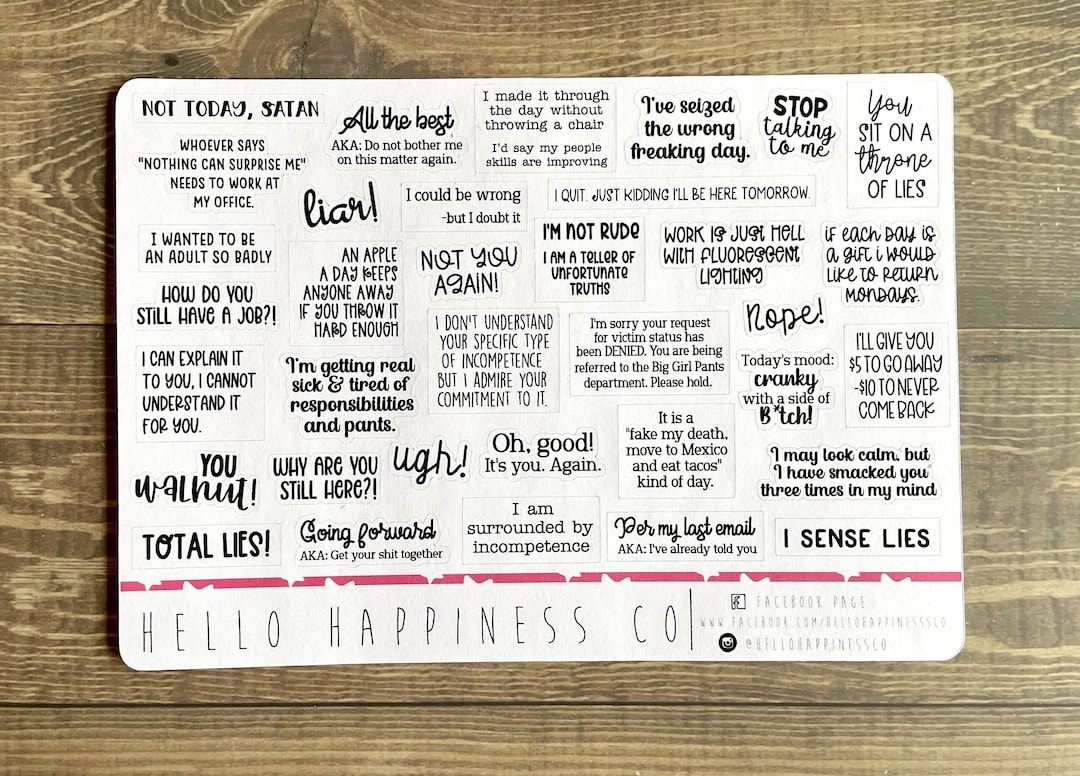 NOT TODAY, SATAN
All the best
AKA: Do not bother me
on this matter again.
I made it through
the day without
throwing a chair
I'd say my people
skills are improving
I've seized
the wrong
freaking day.
STOP
talking
to me
You
SIT ON A
throne
OF LIES
WHOEVER SAYS
"NOTHING CAN SURPRISE ME"
NEEDS TO WORK AT
MY OFFICE.
liar!
I could be wrong
-but I doubt it
I QUIT. JUST KIDDING I'LL BE HERE TOMORROW.
I WANTED TO BE
AN ADULT SO BADLY
AN APPLE
A DAY KEEPS
ANYONE AWAY
IF YOU THROW IT
HARD ENOUGH
NOT YOU
AGAIN!
I'M NOT RUDE
I AM A TELLER OF
UNFORTUNATE
TRUTHS
WORK IS JUST HELL
WITH FLUORESCENT
LIGHTING
if each day is
a gift i would
like to return
mondays.
HOW DO YOU
STILL HAVE A JOB?!
I DON'T UNDERSTAND
YOUR SPECIFIC TYPE
OF INCOMPETENCE
BUT I ADMIRE YOUR
COMMITMENT TO IT.
I'm sorry your request
for victim status has
been DENIED. You are being
referred to the Big Girl Pants
department. Please hold.
Nope!
I CAN EXPLAIN IT
TO YOU, I CANNOT
UNDERSTAND IT
FOR YOU.
I'm getting real
sick & tired of
responsibilities
and pants.
Today's mood:
cranky
with a side of
B*tch!
I'LL GIVE YOU
$5 TO GO AWAY
-$10 TO NEVER
COME BACK
It is a
"fake my death,
move to Mexico
and eat tacos"
kind of day.
YOU
walnut!
WHY ARE YOU
STILL HERE?!
ugh!
Oh, good!
It's you. Again.
I may look calm, but
I have smacked you
three times in my mind
TOTAL LIES!
Going forward
AKA: Get your shit together
I am
surrounded by
incompetence
Per my last email
AKA: I've already told you
I SENSE LIES
HELLO HAPPINESS CO
FACEBOOK PAGE
WWW.FACEBOOK.COM/HELLOHAPPINESSSCO
@HELLOHAPPINESSCO